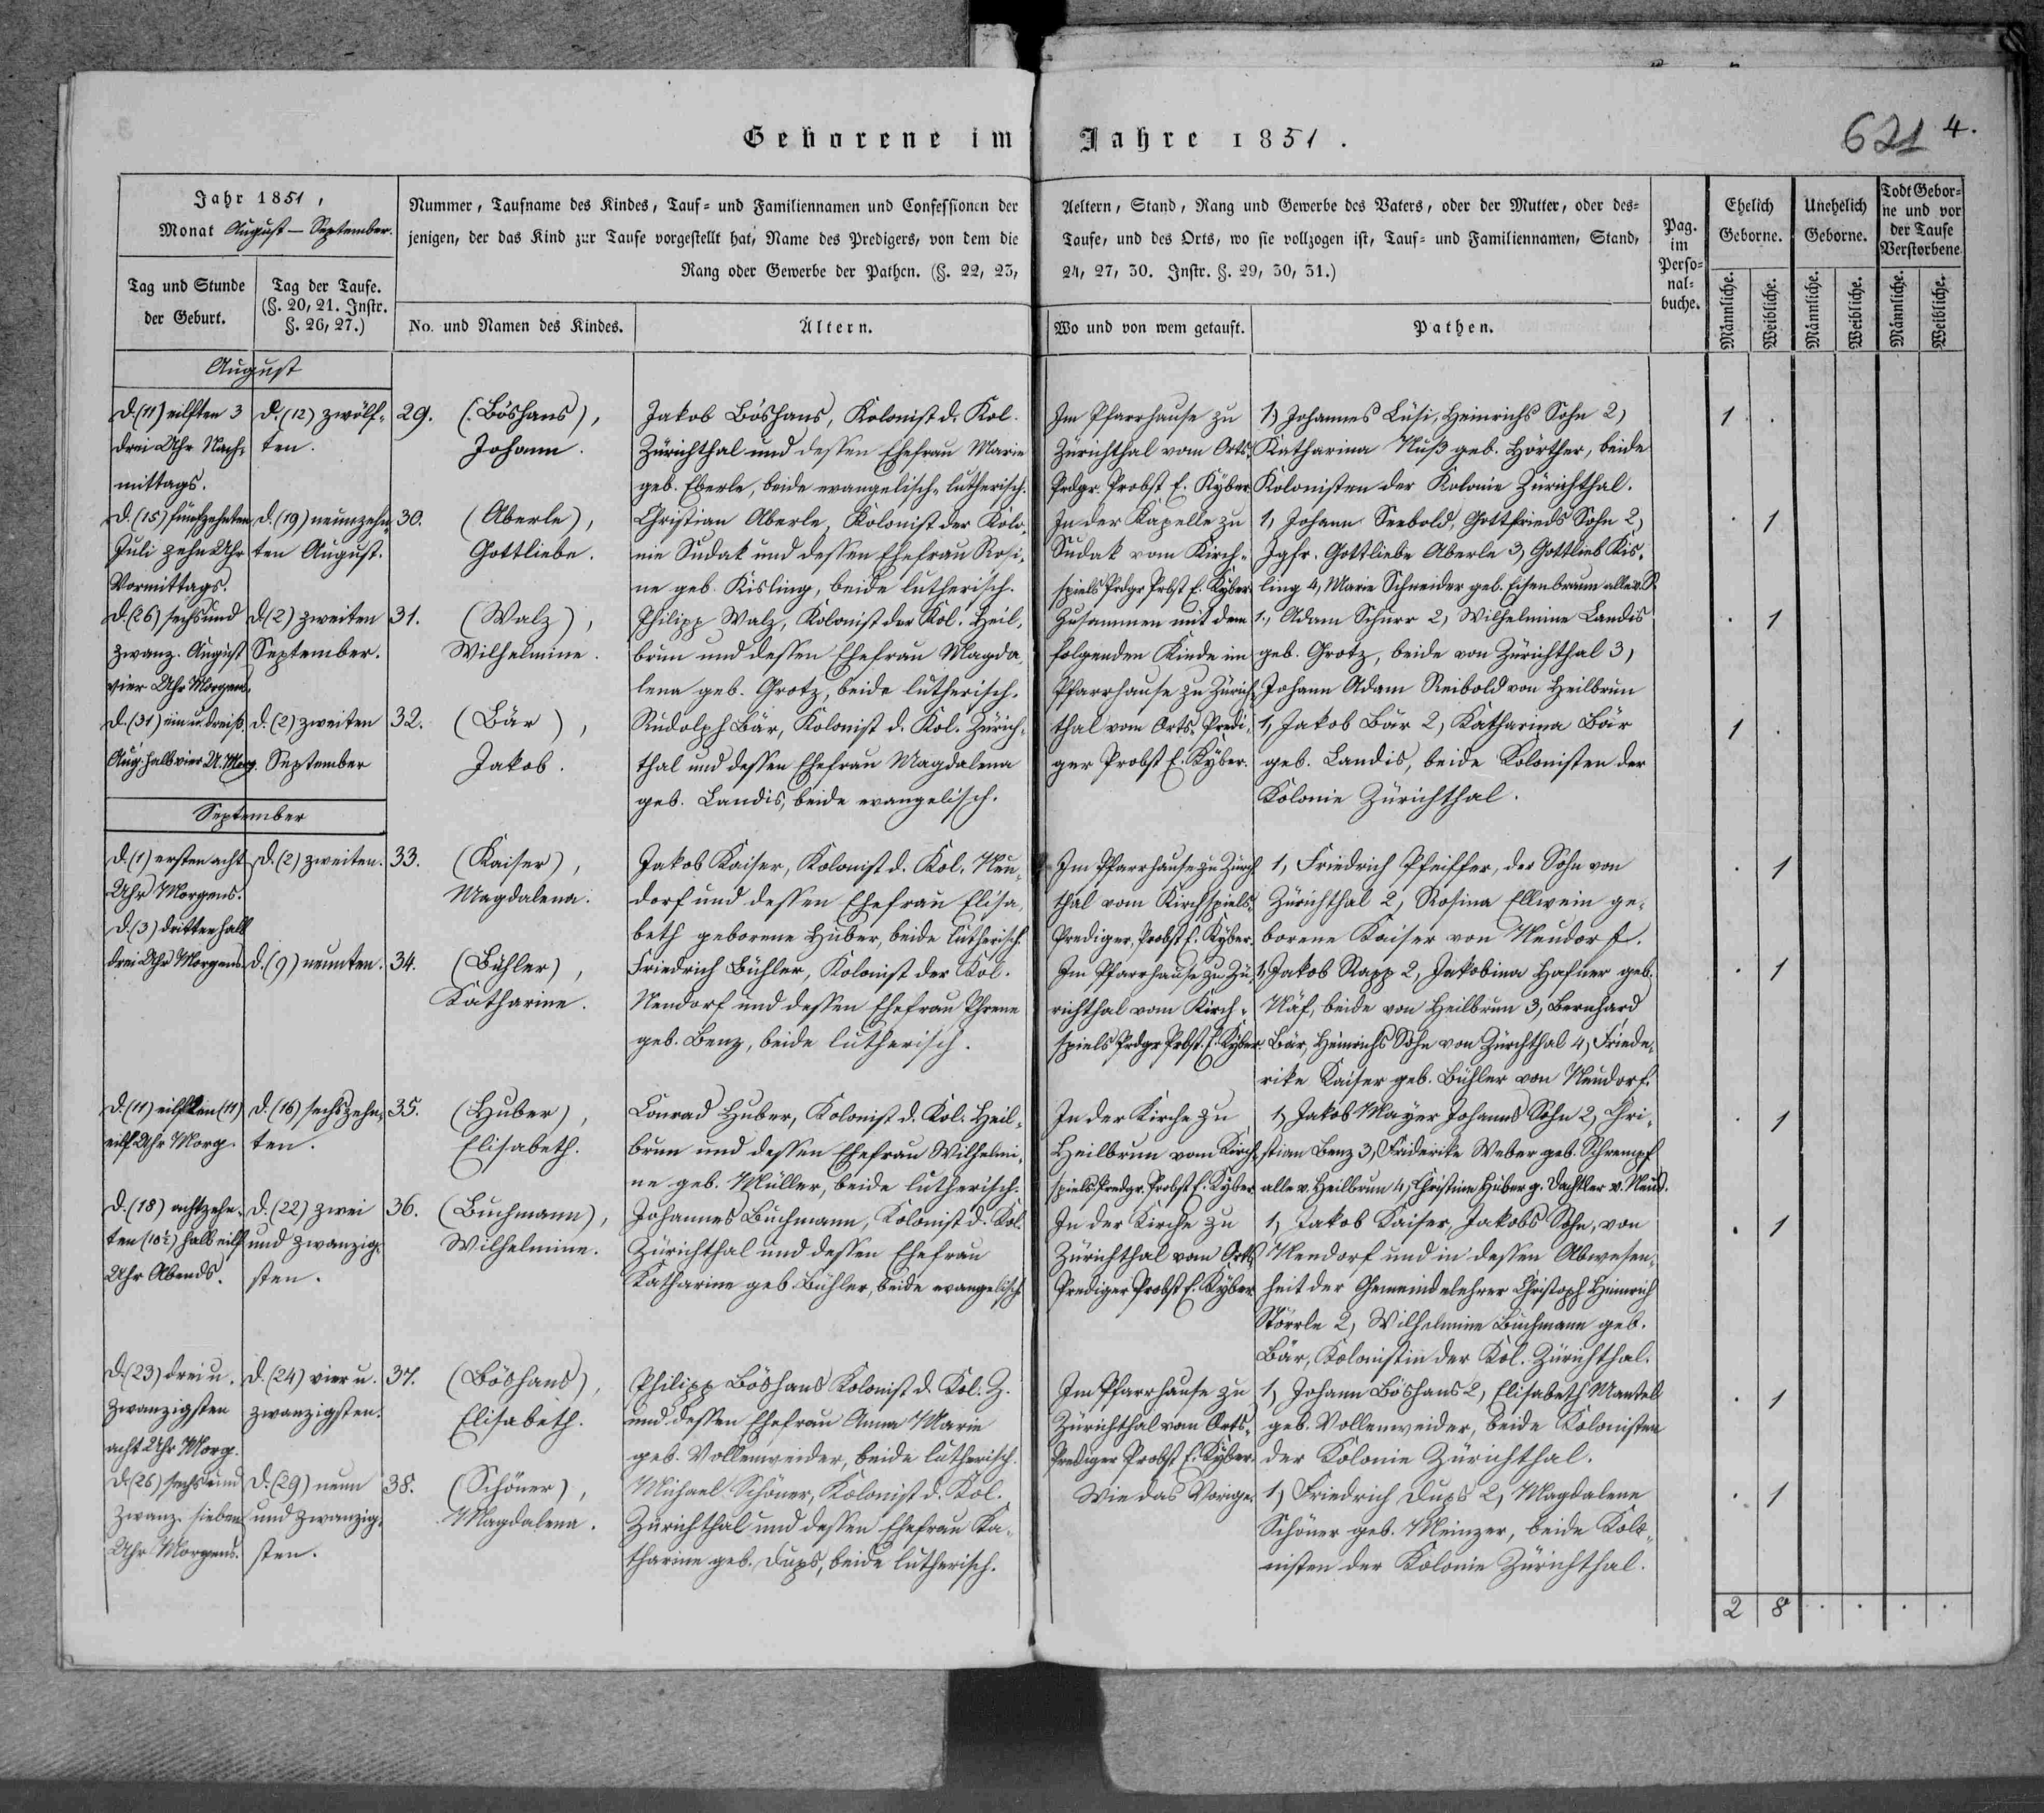 Geborene im Jahre 1851.
621 4.
Jahr 1851,
Monat August – September.
Tag und Stunde der Geburt.
Tag der Taufe. (§. 20, 21. Instr. §. 26, 27.)
Nummer, Taufname des Kindes, Tauf- und Familiennamen und Confessionen der Aeltern, Stand, Rang und Gewerbe des Vaters, oder der Mutter, oder des-
jenigen, der das Kind zur Taufe vorgestellt hat, Name des Predigers, von dem die Taufe, und des Orts, wo sie vollzogen ist, Tauf- und Familiennamen, Stand,
Rang oder Gewerbe der Pathen. (§. 22, 23, 24, 27, 30. Instr. §. 29, 30, 31.)
No. und Namen des Kindes.
Ältern.
Wo und von wem getauft.
Pathen.
Pag. im Perso-nal-buche.
Ehelich Geborne.
Unehelich Geborne.
Todt Gebor-ne und vor der Taufe Verstorbene
Männliche. Weibliche. Männliche. Weibliche. Männliche. Weibliche.
August
D. (11) eilften 3
drei Uhr Nach-
mittags.
d. (12) zwölf-
ten.
29. (Böshans),
Johann.
Jakob Böshans, Kolonist d. Kol.
Zürichthal und dessen Ehefrau Marie
geb. Eberle, beide evangelisch-lutherisch.
Im Pfarrhause zu
Zürichthal vom Orts-
Prdgr. Probst E. Kyber
1) Johannes Lüsi, Heinrichs Sohn 2)
Katharina Nuß geb. Hörther, beide
Kolonisten der Kolonie Zürichthal.
1 .
D. (15) fünfzehnten
Juli zehn Uhr
Vormittags.
d. (19) neunzehn-
ten August.
30. (Aberle),
Gottliebe.
Christian Aberle, Kolonist der Kolo-
nie Sudak und dessen Ehefrau Rosi-
ne geb. Kisling, beide lutherisch.
In der Kapelle zu
Sudak vom Kirch-
spiels Prdgr Prbst E. Kyber
1, Johann Seebold, Gottfrieds Sohn 2,
Jgfr. Gottliebe Aberle 3, Gottlieb Kis-
ling 4, Marie Schneider geb. Eisenbraun alle v. S.
. 1
D. (26) sechs und
zwanz. August
vier Uhr Morgens.
d. (2) zweiten
September.
31. (Walz),
Wilhelmine.
Philipp Walz, Kolonist der Kol. Heil-
brun und dessen Ehefrau Magda-
lena geb. Grotz, beide lutherisch.
Zusammen mit dem
folgenden Kinde im
Pfarrhause zu Zürich-
1., Adam Schurr 2, Wilhelmine Landis
geb. Grotz, beide von Zürichthal 3,
Johann Adam Reibold von Heilbrun
. 1
D. (31) ein u. dreiß.
Aug. halb vier U. Morg.
d. (2) zweiten
September
32. (Bär),
Jakob.
Rudolph Bär, Kolonist d. Kol. Zürich-
thal und dessen Ehefrau Magdalena
geb. Landis, beide evangelisch.
thal vom Orts-Predi-
ger Probst E. Kyber.
1, Jakob Bär 2, Katharina Bär
geb. Landis, beide Kolonisten der
Kolonie Zürichthal.
1 .
September
D. (1) ersten acht
Uhr Morgens.
d. (2) zweiten.
33. (Kaiser),
Magdalena.
Jakob Kaiser, Kolonist d. Kol. Neu-
dorf und dessen Ehefrau Elisa-
beth geborene Huber, beide lutherisch.
Im Pfarrhause zu Zürch
thal vom Kirchspiels-
Prediger, Probst E. Kyber.
1, Friedrich Pfeiffer, der Sohn von
Zürichthal 2, Rosina Ellwein ge-
borene Kaiser von Neudorf.
. 1
D. (3) dritten halb
drei Uhr Morgens.
d. (9) neunten.
34. (Bühler),
Katharine.
Friedrich Bühler, Kolonist der Kol.
Neudorf und dessen Ehefrau Phrene
geb. Benz, beide lutherisch.
Im Pfarrhause zu Zü-
richthal vom Kirch-
spiels Prdgr Prbst. E. Kyber.
1, Jakob Rapp 2, Jakobina Hafner geb.
Näf, beide von Heilbrun 3, Bernhard
Bär, Heinrichs Sohn von Zürchthal 4, Friede-
rike Kaiser geb. Bühler von Neudorf.
. 1
D. (11) eilften (11)
eilf Uhr Morg.
d. (16) sechszehn-
ten.
35. (Huber),
Elisabeth.
Conrad Huber, Kolonist d. Kol. Heil-
brun und dessen Ehefrau Wilhelmi-
ne geb. Müller, beide lutherisch.
In der Kirche zu
Heilbrun vom Kirch-
spiels Predgr. Probst E. Kyber
1, Jakob Mayer Johanns Sohn 2, Chri-
stian Benz 3, Friderike Weber geb. Schrempf
alle v. Heilbrun 4, Christine Huber g. Dachtler v. Neud.
. 1
D. (18) achtzehn-
ten (10½) halb eilf
Uhr Abends.
d. (22) zwei
und zwanzig-
sten.
36. (Buchmann),
Wilhelmine.
Johannes Buchmann, Kolonist d. Kol.
Zürichthal und dessen Ehefrau
Katharine geb Bühler, beide evangelisch
In der Kirche zu
Zürichthal vom Orts-
Prediger Probst E. Kyber
1, Jakob Kaiser, Jakobs Sohn, von
Neudorf und in dessen Abwesen-
heit der Gemeindelehrer Christoph Heinrich
Störrle 2, Wilhelmine Buchmann geb.
Bär, Kolonistin der Kol. Zürichthal.
. 1
D. (23) drei u.
zwanzigsten
acht Uhr Morg.
d. (24) vier u.
zwanzigsten.
37. (Böshans),
Elisabeth.
Philipp Böshans Kolonist d. Kol. Z.
und dessen Ehefrau Anna Marie
geb. Vollenweider, beide lutherisch.
Im Pfarrhause zu
Zürichthal vom Orts-
Prediger Probst E. Kyber.
1, Johann Böshans 2, Elisabeth Mantel
geb. Vollenweider, beide Kolonisten
der Kolonie Zürichthal.
. 1
D. (26) sechs und
zwanz. sieben
Uhr Morgens.
d. (29) neun
und zwanzig-
sten.
38. (Schöner),
Magdalena.
Michael Schöner, Kolonist d. Kol.
Zürichthal und dessen Ehefrau Ka-
tharine geb. Dups, beide lutherisch.
Wie das Vorige.
1, Friedrich Dups 2, Magdalene
Schöner geb. Meinzer, beide Kolo-
nisten der Kolonie Zürichthal.
. 1
2 8 . . . .